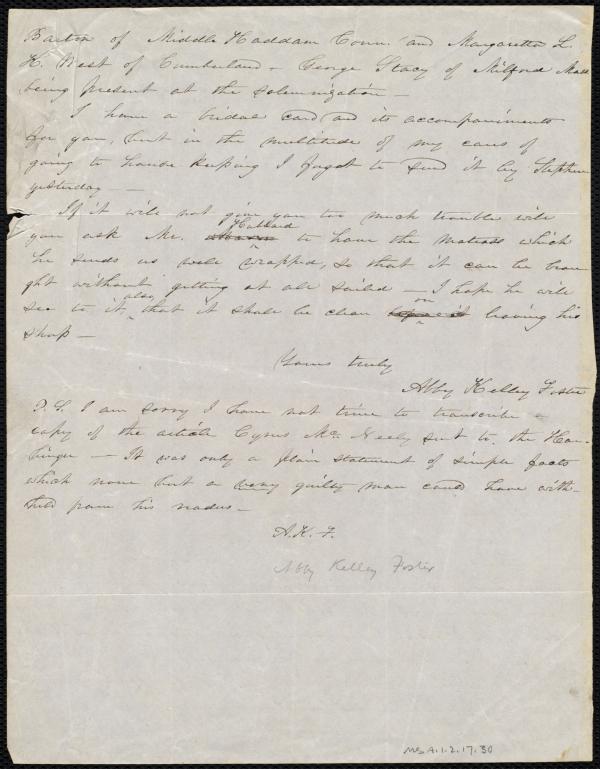 Barton of Middle Haddam Conn. and Margaretta L.
H. West of Cumberland - George Stacy of Milford Mass
being present at the solemnization -
I have a bridal card and its accompaniments
for you, but in the multitude of my cares of
going to house keeping I forgot to send it by Stephen
yesterday -
If it will not give you too much trouble will
you ask Mr. Hubbard to have the matrass which
he sends us well wrapped, so that it can be brou
ght without getting at all soiled - I hope he will
see to it, also, that it shall be clean on leaving his
shop -
Yours truly
Abby Kelley Foster
P.S. I am sorry I have not time to transcribe a
copy of the article Cyrus Mc. Neely sent to the Har-
binger - It was only a plain statement of simple facts
which none but a very guilty man could have with-
held from his readers -
A.K.F.
Abby Kelley Foster
MS A.1.2.17.30